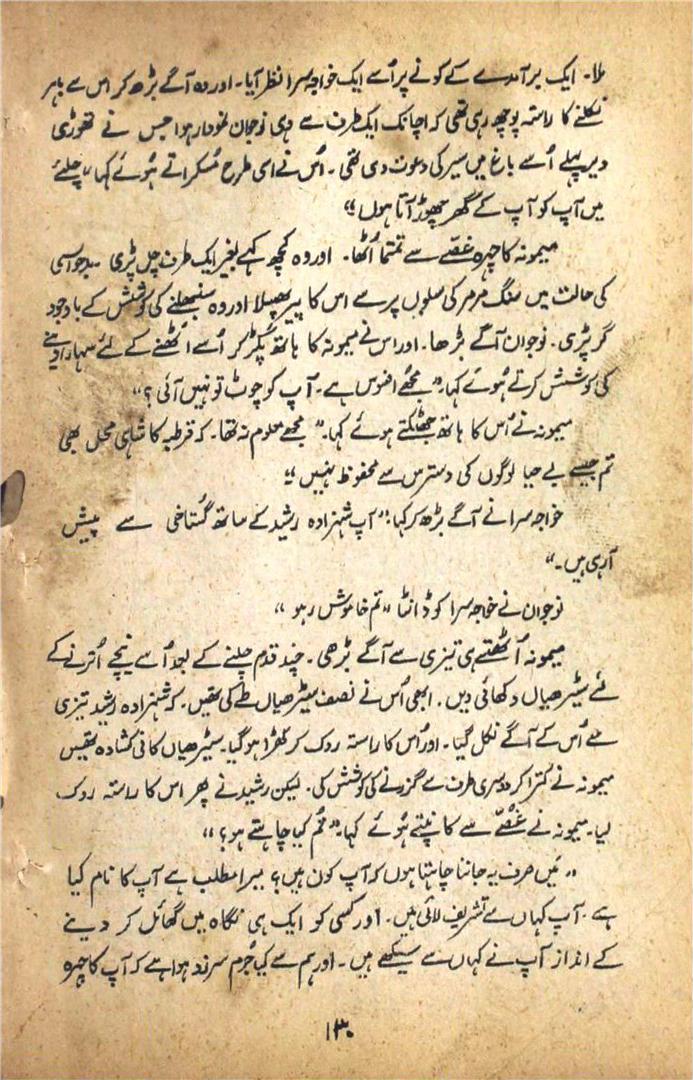 ملا۔ ایک برآمدے کے کونے پر اُسے ایک خواجہ سرا نظر آیا۔ اور وہ آگے بڑھ کر اس سے باہر
نکلنے کا راستہ پوچھ رہی تھی کہ اچانک ایک طرف سے وہی نوجوان نمودار ہوا جس نے تھوڑی
دیر پہلے اُسے باغ میں سیر کی دعوت دی تھی۔ اُس نے اسی طرح مُسکراتے ہُوئے کہا "چلئے
میں آپ کو آپ کے گھر چھوڑ آتا ہوں"
میمونہ کا چہرہ غصّے سے تمتما اُٹھا۔ اور وہ کچھ کہے بغیر ایک طرف چل پڑی۔ بدحواسی
کی حالت میں سنگ مرمر کی سلوں پر سے اس کا پیر پھسلا اور وہ سنبھلنے کی کوشش کے باوجود
گر پڑی۔ نوجوان آگے بڑھا۔ اور اس نے میمونہ کا ہاتھ پکڑ کر اُسے اُٹھنے کے لئے سہارا دینے
کی کوشش کرتے ہُوئے کہا۔ "مجھے افسوس ہے۔ آپ کو چوٹ تو نہیں آئی؟"
میمونہ نے اُس کا ہاتھ جھٹکتے ہوئے کہا۔ "مجھے معلوم نہ تھا۔ کہ قرطبہ کا شاہی محل بھی
تم جیسے بے حیا لوگوں کی دسترس سے محفوظ نہیں"
خواجہ سرا نے آگے بڑھ کر کہا۔ "آپ شہزادہ رشید کے ساتھ گستاخی سے پیش
آ رہی ہیں۔"
نوجوان نے خواجہ سرا کو ڈانٹا "تم خاموش رہو"
میمونہ اُٹھتے ہی تیزی سے آگے بڑھی۔ چند قدم چلنے کے بعد اُسے نیچے اُترنے کے
لئے سیڑھیاں دکھائی دیں۔ ابھی اُس نے نصف سیڑھیاں طے کی تھیں۔ کہ شہزادہ رشید تیزی
سے اُس کے آگے نکل گیا۔ اور اُس کا راستہ روک کر کھڑا ہو گیا۔ سیڑھیاں کافی کشادہ تھیں
میمونہ نے کترا کر دوسری طرف سے گزرنے کی کوشش کی۔ لیکن رشید نے پھر اس کا راستہ روک
لیا۔ میمونہ نے غُصّے سے کانپتے ہُوئے کہا۔ "تم کیا چاہتے ہو؟"
"میں صرف یہ جاننا چاہتا ہوں کہ آپ کون ہیں؟ میرا مطلب ہے آپ کا نام کیا
ہے۔ آپ کہاں سے تشریف لائی ہیں۔ اور کسی کو ایک ہی نگاہ میں گھائل کر دینے
کے انداز آپ نے کہاں سے سیکھے ہیں۔ اور ہم سے کیا جُرم سرزد ہوا ہے کہ آپ کا چہرہ
۱۳۰